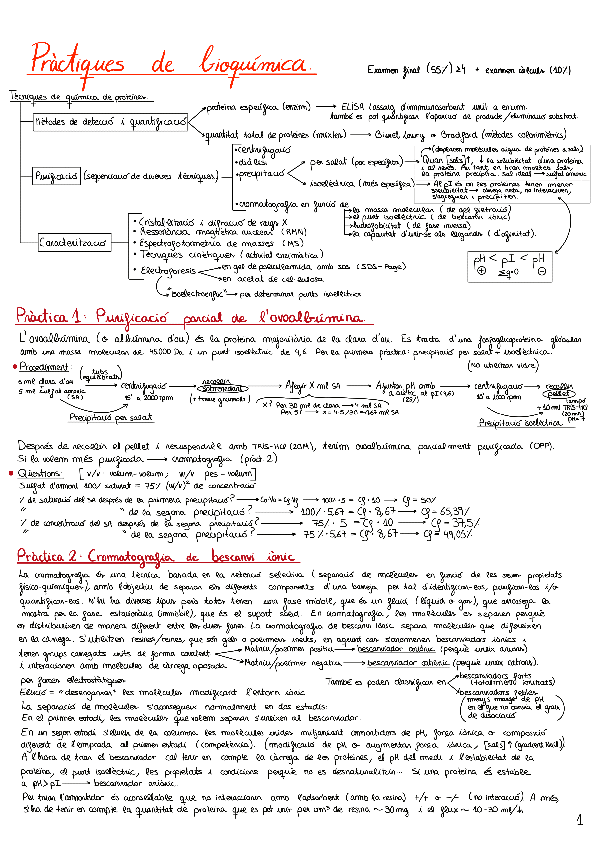 Pràctiques de bioquímica.
Examen final (55%) ≥4 + examen càlculs (10%)
Tècniques de química de proteïnes.
Mètodes de detecció i quantificació
proteïna específica (enzim) → ELISA (assaig d'immunosorbent unit a enzim.
també es pot quantificar l'aparició de producte / disminució substrat.
quantitat total de proteïnes (mixtes) → Biuret, Lowry o Bradford (mètodes colorimètrics)
Purificació (seqüenciació de diverses tècniques)
• centrifugació
• diàlisi
• precipitació
per salat (poc específica)
isoelèctrica (més específica)
Quan [sals]↑, ↓ la solubilitat d'una proteïna
• cromatografia en funció de
la massa molecular (de gel filtració)
el punt isoelèctric (de bescanvi iònic)
hidrofobicitat (de fase inversa)
la capacitat d'unir-se als lligands (d'afinitat).
Caracterització
• Cristal·lització i difracció de raigs X
• Ressonància magnètica nuclear (RMN)
• Espectrofotometria de masses (MS)
• Tècniques cinètiques (activitat enzimàtica)
• Electroforesis
en gel de poliacrilamida, amb SDS (SDS-Page)
en acetat de cel·lulosa
"Isoelectroenfoc" → per determinar punts isoelèctrics
pH < pI < pH
⊕ ⊖
Pràctica 1: Purificació parcial de l'ovoalbúmina.
L'ovoalbúmina (o albúmina d'ou) és la proteïna majoritària de la clara d'ou. Es tracta d'una fosfoglicoproteïna globular
amb una massa molecular de 45000 Da i un punt isoelèctric de 4,6. Per la primera pràctica: precipitació per salat + isoelèctrica.
• Procediment:
(tubs equilibrats)
(no utilitzar vidre)
5 ml clara d'ou
5 ml sulfat amònic
(SA)
centrifugació
10' a 2000 rpm
recollir
sobrenedant
Afegir X ml SA
Ajustar pH amb
centrifugació
10' a 2000 rpm
recollir
pellet
Precipitació per salat
Precipitació isoelèctrica
Després de recollir el pellet i resuspendre'l amb TRIS-HCl (20mM), tenim ovoalbúmina parcialment purificada (OPP).
Si la volem més purificada → cromatografia (pràct. 2)
• Qüestions: [v/v volum-volum; w/v pes-volum]
Sulfat d'amoni 100% saturat = 75% (w/v) de concentració
% de saturació del SA després de la primera precipitació? → Co·Vo = Cf·Vf → 100%·5 = Cf·10 → Cf = 50%
" " de la segona precipitació? → 100%·5,67 = Cf·8,67 → Cf = 65,39%
% de concentració del SA després de la primera precipitació? → 75%·5 = Cf·10 → Cf = 37,5%
" " de la segona precipitació? → 75%·5,67 = Cf·8,67 → Cf = 49,05%
Pràctica 2: Cromatografia de bescanvi iònic
La cromatografia és una tècnica basada en la retenció selectiva (separació de molècules en funció de les seves propietats
físico-químiques), amb l'objectiu de separar els diferents components d'una barreja per tal d'identificar-los, purificar-los i/o
quantificar-los. N'hi ha diversos tipus però totes tenen una fase mòbil, que és un fluid (líquid o gas), que arrossega la
mostra per la fase estacionària (immòbil), que és el suport sòlid. En cromatografia, les molècules es separen perquè
es distribueixen de manera diferent entre les dues fases. La cromatografia de bescanvi iònic separa molècules que difereixen
en la càrrega. S'utilitzen resines/reïnes, que són gels o polímers inerts, en aquest cas s'anomenen bescanviadors iònics i
tenen grups carregats units de forma covalent
i interaccionen amb molècules de càrrega oposada
per forces electrostàtiques
Matriu/polímer positiu → bescanviador aniònic (perquè uneix anions)
Matriu/polímer negatiu → bescanviador catiònic (perquè uneix cations).
També es poden classificar en
bescanviadors forts
bescanviadors febles
Elució = "desenganxar" les molècules modificant l'entorn iònic
La separació de molècules s'aconsegueix normalment en dos estadis:
En el primer estadi, les molècules que volem separar s'uneixen al bescanviador.
En un segon estadi s'elueix de la columna les molècules unides mitjançant amortidors de pH, força iònica o composició
diferent de l'emprada al primer estadi (competència). (modificació de pH o augmentar força iònica, [sals]↑ (gradient NaCl))
A l'hora de triar el bescanviador cal tenir en compte la càrrega de les proteïnes, el pH del medi i l'estabilitat de la
proteïna, el punt isoelèctric, les propietats i condicions perquè no es desnaturalitzi... Si una proteïna és estable
a pH>pI → bescanviador aniònic.
Per triar l'amortidor és aconsellable que no interaccioni amb l'adsorbent (amb la resina) +/+ o -/- (no interacció). A més
s'ha de tenir en compte la quantitat de proteïna que es pot unir per cm³ de resina ~30mg i el flux ~ 10-30 ml/h.
1